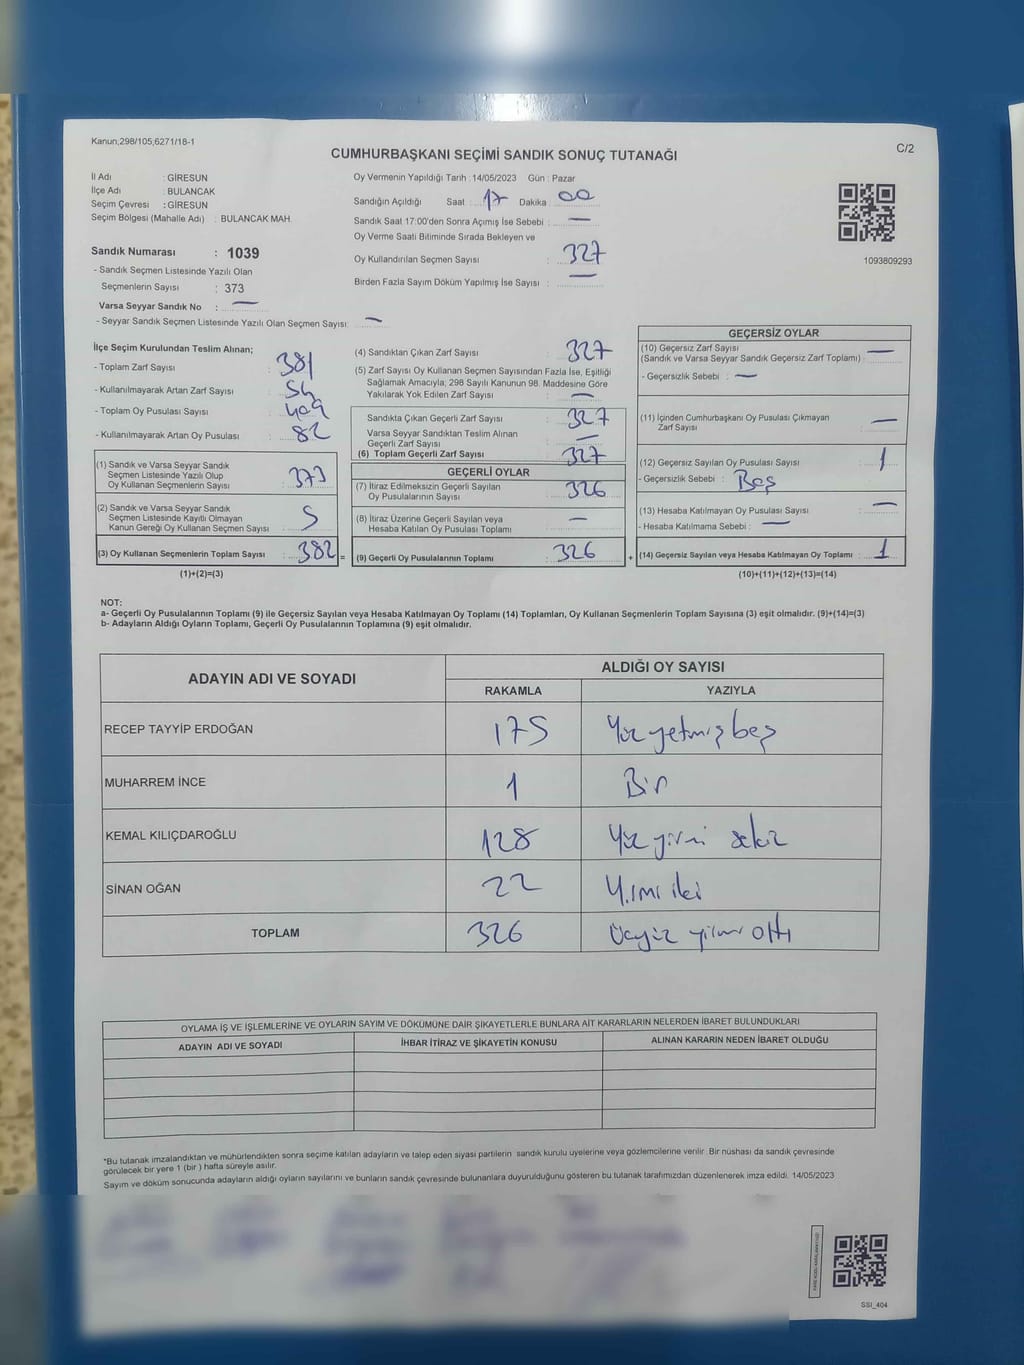 Kanun,298/105,6271/18-1
C/2
CUMHURBAŞKANI SEÇİMİ SANDIK SONUÇ TUTANAĞI
İl Adı : GİRESUN
İlçe Adı : BULANCAK
Seçim Çevresi : GİRESUN
Seçim Bölgesi (Mahalle Adı) : BULANCAK MAH.
Sandık Numarası : 1039
- Sandık Seçmen Listesinde Yazılı Olan
Seçmenlerin Sayısı : 373
Varsa Seyyar Sandık No : —
- Seyyar Sandık Seçmen Listesinde Yazılı Olan Seçmen Sayısı: —
Oy Vermenin Yapıldığı Tarih : 14/05/2023 Gün : Pazar
Sandığın Açıldığı Saat : 17 Dakika : 00
Sandık Saat 17:00'den Sonra Açımış İse Sebebi : —
Oy Verme Saati Bitiminde Sırada Bekleyen ve
Oy Kullandırılan Seçmen Sayısı : 327
Birden Fazla Sayım Döküm Yapılmış İse Sayısı : —
1093809293
İlçe Seçim Kurulundan Teslim Alınan;
- Toplam Zarf Sayısı : 381
- Kullanılmayarak Artan Zarf Sayısı : 54
- Toplam Oy Pusulası Sayısı : 409
- Kullanılmayarak Artan Oy Pusulası : 82
(1) Sandık ve Varsa Seyyar Sandık
Seçmen Listesinde Yazılı Olup
Oy Kullanan Seçmenlerin Sayısı : 373
(2) Sandık ve Varsa Seyyar Sandık
Seçmen Listesinde Kayıtlı Olmayan
Kanun Gereği Oy Kullanan Seçmen Sayısı : 5
(3) Oy Kullanan Seçmenlerin Toplam Sayısı : 382 =
(1)+(2)=(3)
(4) Sandıktan Çıkan Zarf Sayısı : 327
(5) Zarf Sayısı Oy Kullanan Seçmen Sayısından Fazla İse, Eşitliği
Sağlamak Amacıyla; 298 Sayılı Kanunun 98. Maddesine Göre
Yakılarak Yok Edilen Zarf Sayısı : —
Sandıkta Çıkan Geçerli Zarf Sayısı : 327
Varsa Seyyar Sandıktan Teslim Alınan
Geçerli Zarf Sayısı : —
(6) Toplam Geçerli Zarf Sayısı : 327
GEÇERLİ OYLAR
(7) İtiraz Edilmeksizin Geçerli Sayılan
Oy Pusulalarının Sayısı : 326
(8) İtiraz Üzerine Geçerli Sayılan veya
Hesaba Katılan Oy Pusulası Toplamı : —
(9) Geçerli Oy Pusulalarının Toplamı : 326 +
GEÇERSİZ OYLAR
(10) Geçersiz Zarf Sayısı
(Sandık ve Varsa Seyyar Sandık Geçersiz Zarf Toplamı) : —
- Geçersizlik Sebebi : —
(11) İçinden Cumhurbaşkanı Oy Pusulası Çıkmayan
Zarf Sayısı : —
(12) Geçersiz Sayılan Oy Pusulası Sayısı : 1
- Geçersizlik Sebebi : Boş
(13) Hesaba Katılmayan Oy Pusulası Sayısı : —
- Hesaba Katılmama Sebebi : —
(14) Geçersiz Sayılan veya Hesaba Katılmayan Oy Toplamı : 1
(10)+(11)+(12)+(13)=(14)
NOT:
a- Geçerli Oy Pusulalarının Toplamı (9) ile Geçersiz Sayılan veya Hesaba Katılmayan Oy Toplamı (14) Toplamları, Oy Kullanan Seçmenlerin Toplam Sayısına (3) eşit olmalıdır. (9)+(14)=(3)
b- Adayların Aldığı Oyların Toplamı, Geçerli Oy Pusulalarının Toplamına (9) eşit olmalıdır.
ADAYIN ADI VE SOYADI ALDIĞI OY SAYISI
RAKAMLA YAZIYLA
RECEP TAYYİP ERDOĞAN 175 Yüz yetmiş beş
MUHARREM İNCE 1 Bir
KEMAL KILIÇDAROĞLU 128 Yüz yirmi sekiz
SİNAN OĞAN 22 Yirmi iki
TOPLAM 326 Üçyüz yirmi altı
OYLAMA İŞ VE İŞLEMLERİNE VE OYLARIN SAYIM VE DÖKÜMÜNE DAİR ŞİKAYETLERLE BUNLARA AİT KARARLARIN NELERDEN İBARET BULUNDUKLARI
ADAYIN ADI VE SOYADI İHBAR İTİRAZ VE ŞİKAYETİN KONUSU ALINAN KARARIN NEDEN İBARET OLDUĞU
*Bu tutanak imzalandıktan ve mühürlendikten sonra seçime katılan adayların ve talep eden siyasi partilerin sandık kurulu üyelerine veya gözlemcilerine verilir. Bir nüshası da sandık çevresinde
görülecek bir yere 1 (bir ) hafta süreyle asılır.
Sayım ve döküm sonucunda adayların aldığı oyların sayılarını ve bunların sandık çevresinde bulunanlara duyurulduğunu gösteren bu tutanak tarafımızdan düzenlenerek imza edildi. 14/05/2023
SSI_404